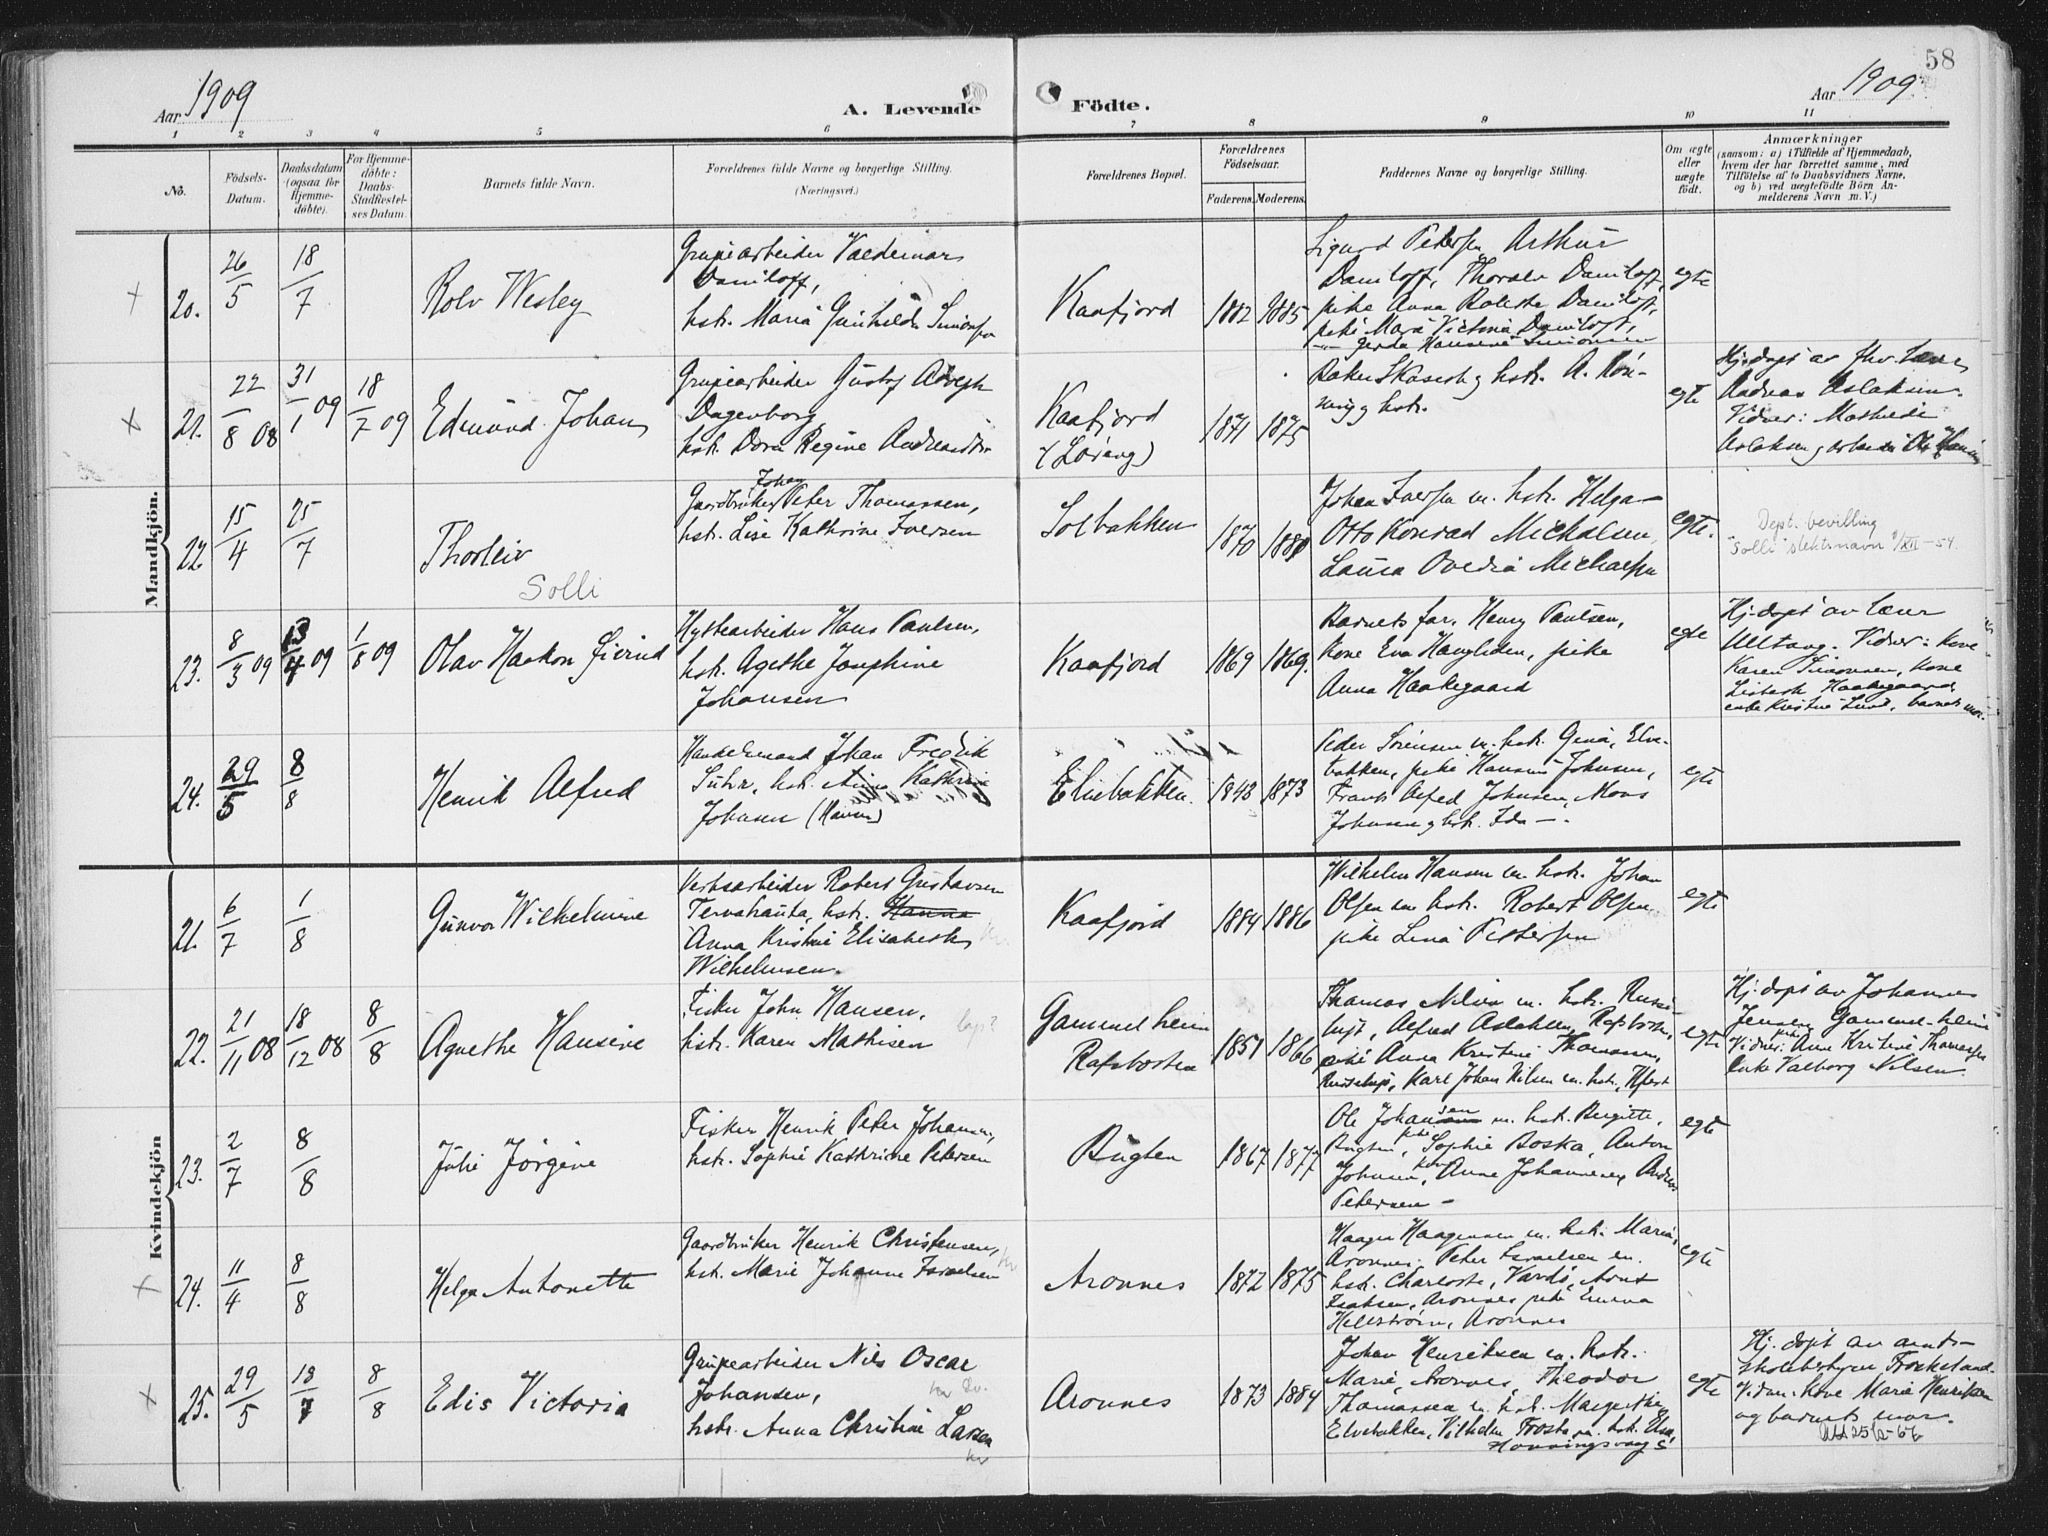 58
Aar 1909
A. Levende Födte.
Aar 1909
1 2 3 4 5 6 7 8 9 10 11
No.
Födsels-
Datum.
Daabsdatum
(ogsaa for
Hjemme-
döbte).
For Hjemme-
döbte:
Daabs-
Stadfæstel-
ses Datum.
Barnets fulde Navn.
Forældrenes fulde Navne og borgerlige Stilling.
(Næringsvei.)
Forældrenes Bopæl.
Forældrenes
Födselsaar.
Faderens. Moderens.
Faddernes Navne og borgerlige Stilling.
Om ægte
eller
uægte
födt.
Anmærkninger
(saasom: a) i Tilfælde af Hjemmedaab,
hvem der har forrettet samme, med
Tilföielse af to Daabsvidners Navne,
og b) ved uægtefödte Börn An-
melderens Navn m. V.)
Mandkjön.
20. 26/5 18/7
Rolv Wesley
Grupearbeider Valdemar
Daniloff,
hstr. Maria Gunhilda Simonsen
Kaafjord
1882 1885
Sigurd Petersen Arthur
Daniloff, Thorolv Daniloff,
pike Anna Daniloff,
pike Maria Victoria Daniloff,
Gerda Hansine Simonsen
egte
21. 22/8 08 31/1 09 18/7 09
Edmund Johan
Grupearbeider Gustaf Adolph
Dagenborg
hstr. Dora Regine
Kaafjord
(Loreng)
1871 1875
hstr. A. Rön-
ning og hstr.
egte
Hj. döpt av fhv. lærer
Andreas Aslaksen.
Vidner: Mathilde
Aslaksen og arbeider Ole Hansen
22. 15/4 25/7
Thorleiv
Solli
Johan
Gaardbruker Peter Thomassen,
hstr. Lise Kathrine Iversen
Solbakken
1870 1880
Johan Iversen m. hstr. Helga
Otto Konrad Michalsen,
Laura Ovedia Michaelsen
egte.
Dept. bevilling
"Solli" slektsnavn 9/XII - 54.
23. 8/3 09 13/4 09 1/8 09
Olav Haakon Eivind
Hyttearbeider Hans Paulsen,
hstr. Agethe Josephine
Johansen
Kaafjord
1869 1869.
Barnets far, Henry Paulsen,
Kone Eva Haugliden, pike
Anna Haakegaard
egte
Hj. döpt av lærer
Ulltang. Vidner: Kone
Karen Simonsen, kone
Lisbeth Haakegaard,
enke Kirstine Lund, barnets mor.
24. 29/5 8/8
Henrik Alfred
Handelsmand Johan Fredrik
Suhr, hstr. Anna Kathrine
Johnsen (Havnn)
Elvebakken.
1843 1873
Peder Sörensen m. hstr. Gina, Elve-
bakken, pike Hansine Johnsen,
Frants Alfred Johnsen, Mons
Johnsen og hstr. Ida —.
egte
Kvindekjön
21. 6/7 1/8
Gunvor Wilhelmine
Verksarbeider Robert Gustavsen
Tervahauta, hstr. Hanna
Anna Kristine Elisabeth
Wilhelmsen.
Kaafjord
1884 1886
Wilhelm Hansen m hstr. Johan
Olsen m hstr. Robert Olsen
pike Lina Pettersen
egte
22. 21/11 08 18/12 08 8/8
Agnethe Hansine
Fisker John Hansen,
hstr. Karen Mathisen
Gammelheim
Rafsbotn
1851 1866
Thomas Nilsen m. hstr. Russe-
luft, Alfred Aslaksen, Rafsbotn,
pike Anna Kristine Thomassen,
Russeluft, Karl Johan Nilsen m. hstr,
egte
Hj. döpt av Johannes
Jensen Gammelheim
Vidner: pike Anne Kristine Thomassen
enke Valborg Nilsen.
23. 2/7 8/8
Julie Jörgine
Fisker Henrik Peter Johansen,
hstr. Sophie Kathrine Petersen
Bugten
1867 1877
Ole Johansen m. hstr. Birgitte,
Bugten, pike Sophie Boska, Anton
Johnsen, Anne Johannesen, Andreas
Petersen —
egte
24. 11/4 8/8
Helga Antonette
Gaardbruker Henrik Christensen,
hstr. Marie Johanne Israelsen
Aronnes
1872 1875
Haagen Haagensen m. hstr. Maria,
Aronnes, Peter Israelsen m.
hstr. Charlotte, Vardö,
Isaksen, Aronnes, pike Emma
Hellström, Aronnes
egte
25. 29/5 13/7 8/8
Edis Victoria
Grupearbeider Nils Oscar
Johansen,
hstr. Anna Christine Larsen
Aronnes
1873 1884
Johan Henriksen m. hstr.
Marie, Aronnes, Theodor
Thomassen m. hstr. Margrethe
Elvebakken, Vilhelm Trosta m. hstr.
Honningsvaag
egte
Hj. döpt av amts-
skolebestyrer
Vidner: kone Marie Henriksen
og barnets mor.